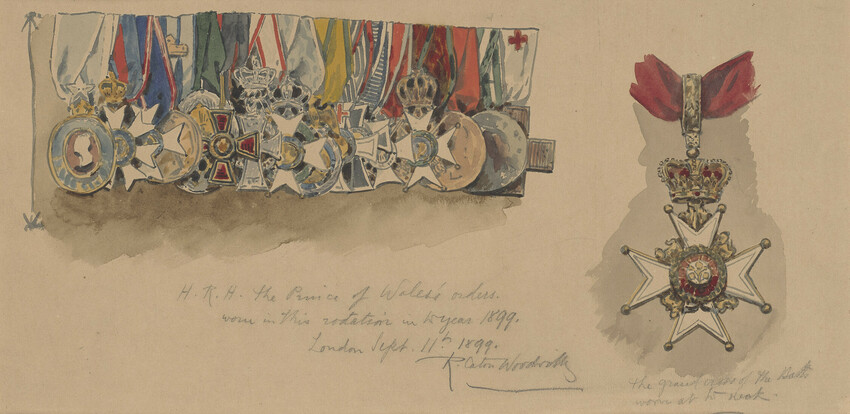 H. R. H. The Prince of Wales's orders.
worn in this rotation in ye year 1899.
London Sept. 11th 1899.
R. Caton Woodville
The grand cross of the Bath
worn at ye neck.